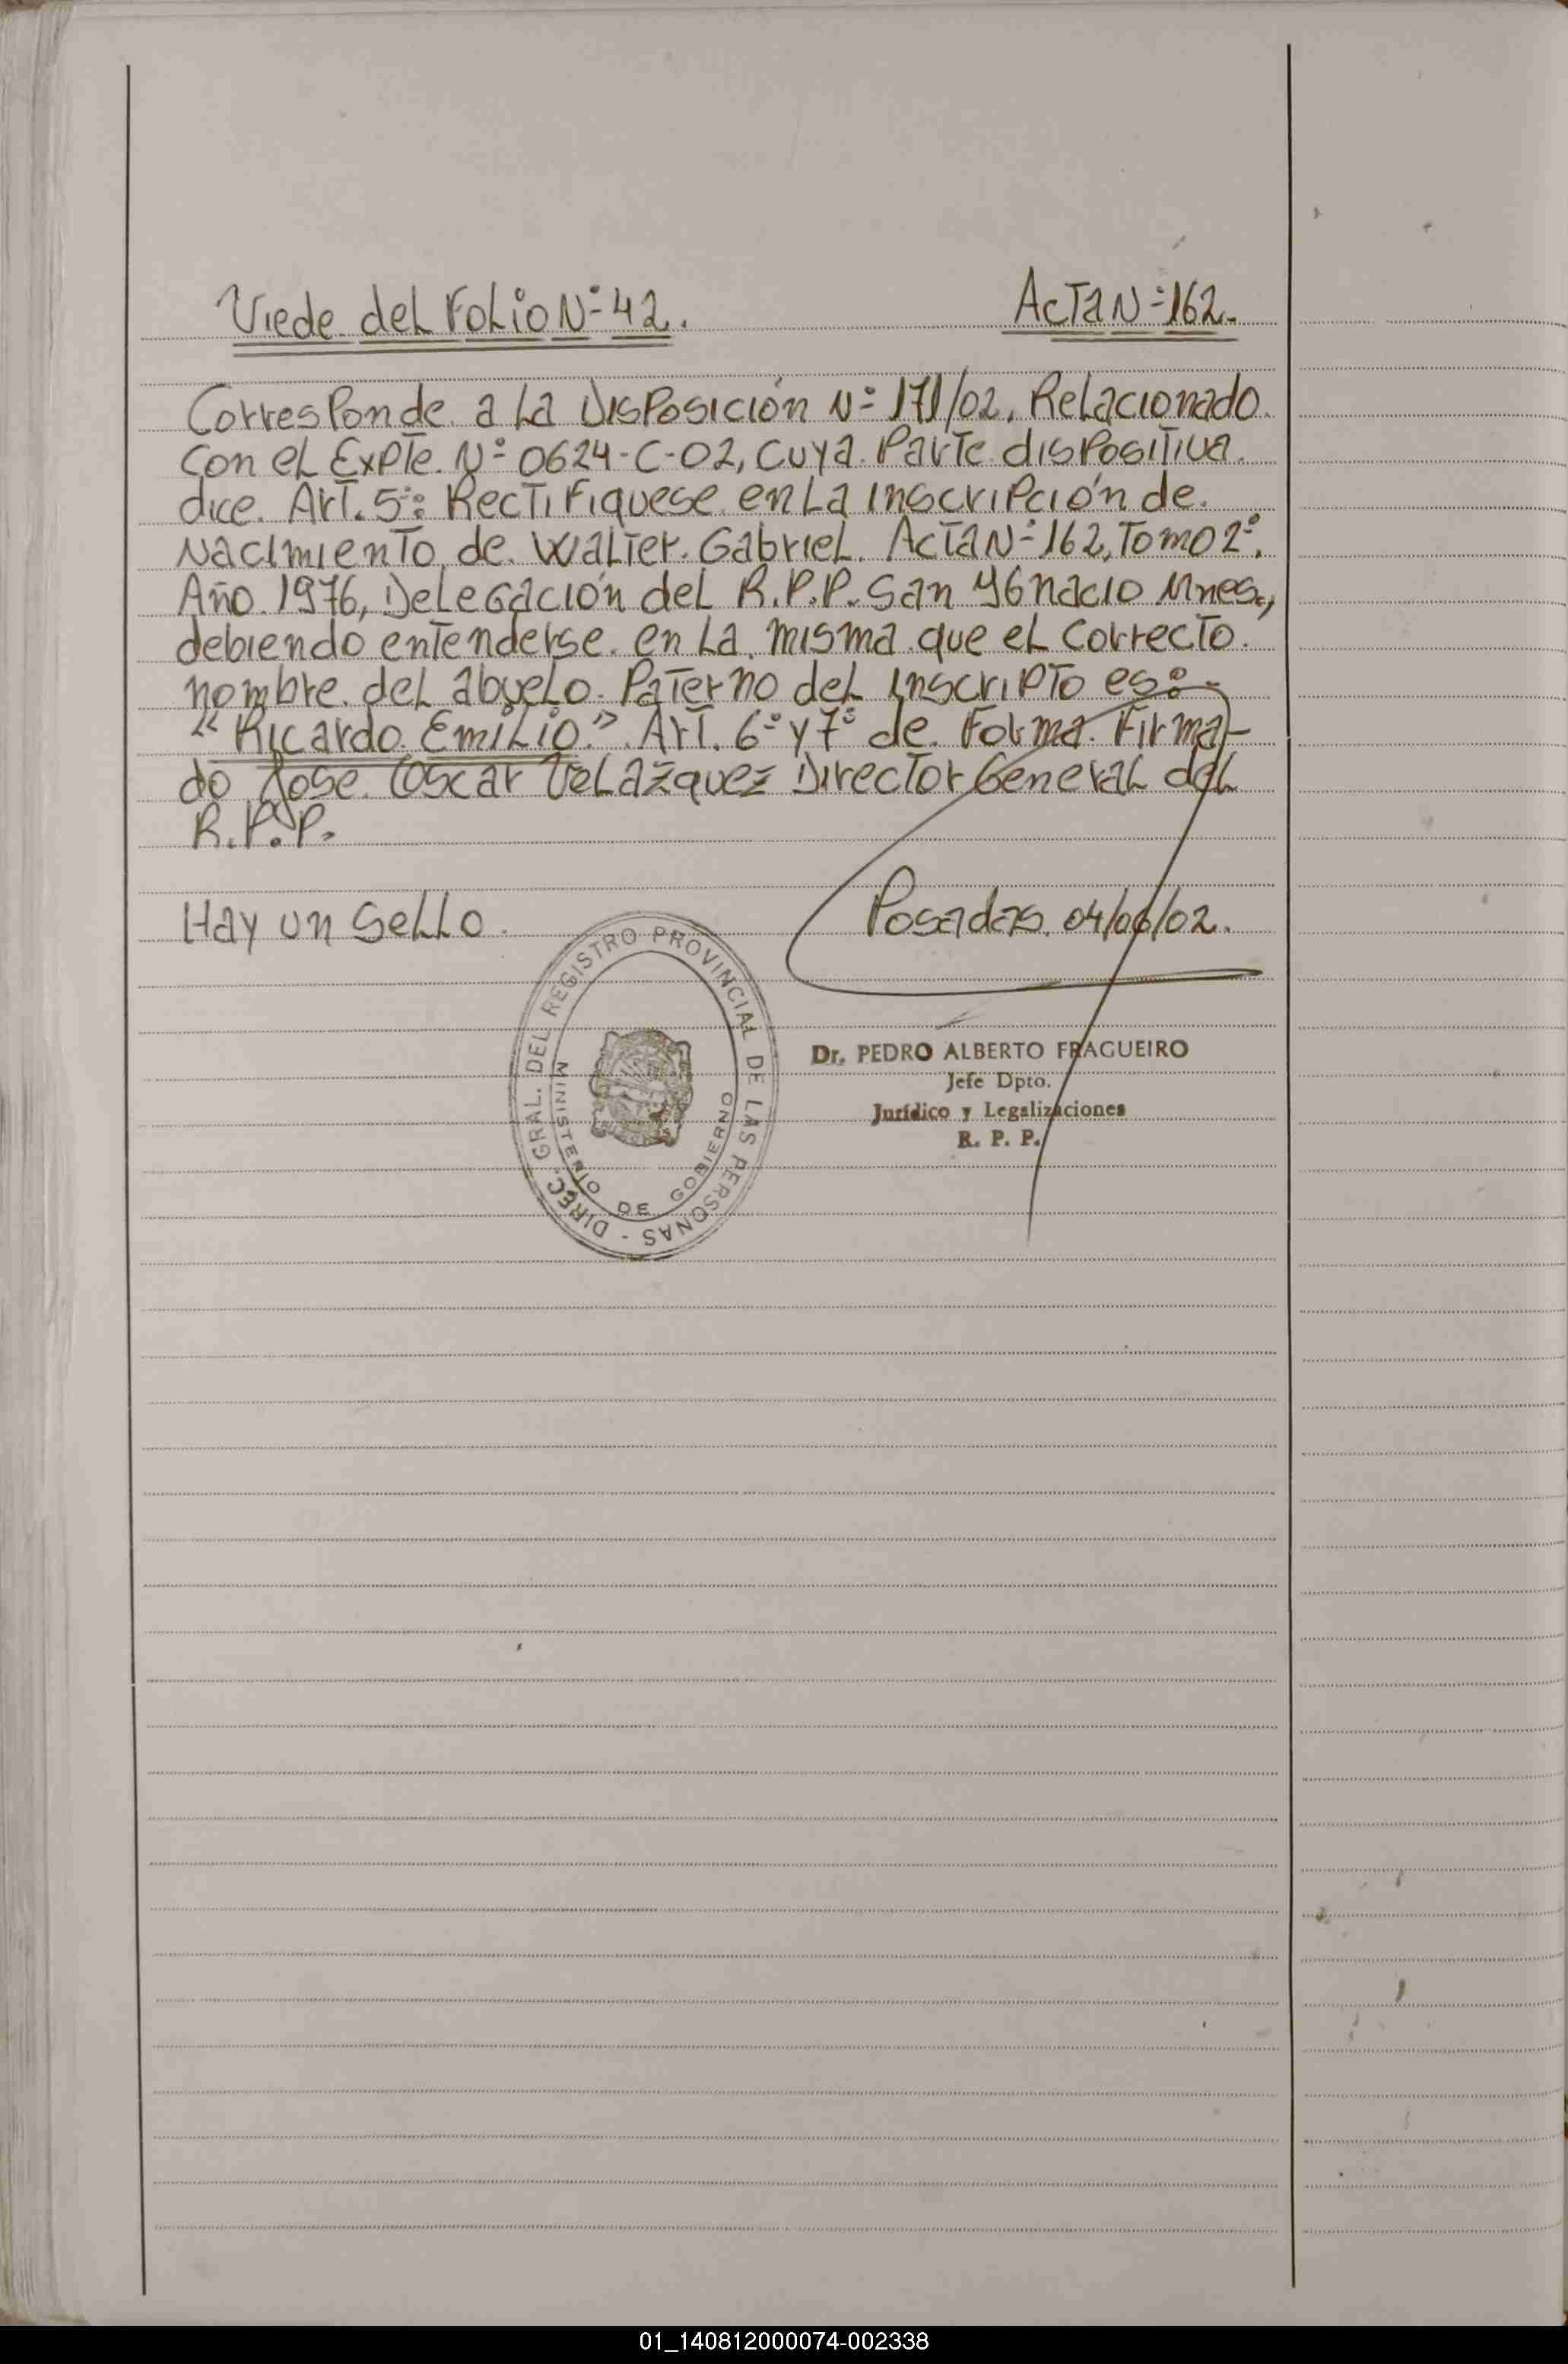 Viede del Folio Nº 42. Acta Nº 162.
Corresponde a la Disposición Nº 171/02. Relacionado
con el Expte. Nº 0624-C-02, cuya parte dispositiva
dice. Art. 5º: Rectifiquese en la inscripción de
nacimiento de Walter Gabriel. Acta Nº 162, Tomo 2º.
Año 1976, Delegación del R.P.P. San Ygnacio Mnes.,
debiendo entenderse en la misma que el correcto
nombre del abuelo Paterno del inscripto es:-
"Ricardo Emilio". Art. 6º y 7º de Forma. Firma-
do Jose Oscar Velazquez Director General del
R.P.P.
Hay un sello. Posadas 04/06/02.
DIREC. GRAL. DEL REGISTRO PROVINCIAL DE LAS PERSONAS -
MINISTERIO DE GOBIERNO
Dr. PEDRO ALBERTO FRAGUEIRO
Jefe Dpto.
Jurídico y Legalizaciones
R. P. P.
01_140812000074-002338